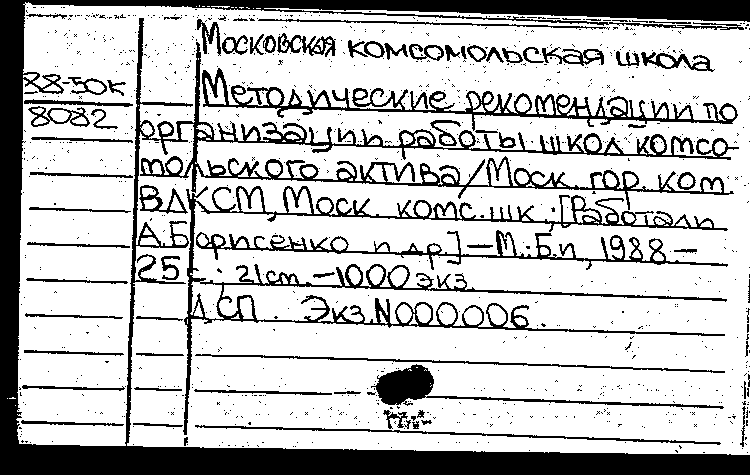 Московская комсомольская школа
88-50к
Методические рекомендации по
8082
организации работы школ комсо-
мольского актива/Моск. гор. ком.
ВЛКСМ, Моск. комс. шк.; [Работали
А.Борисенко и др.] – М.: Б.и, 1988.–
25с.; 21см. –1000экз.
ДСП. Экз.N000006.